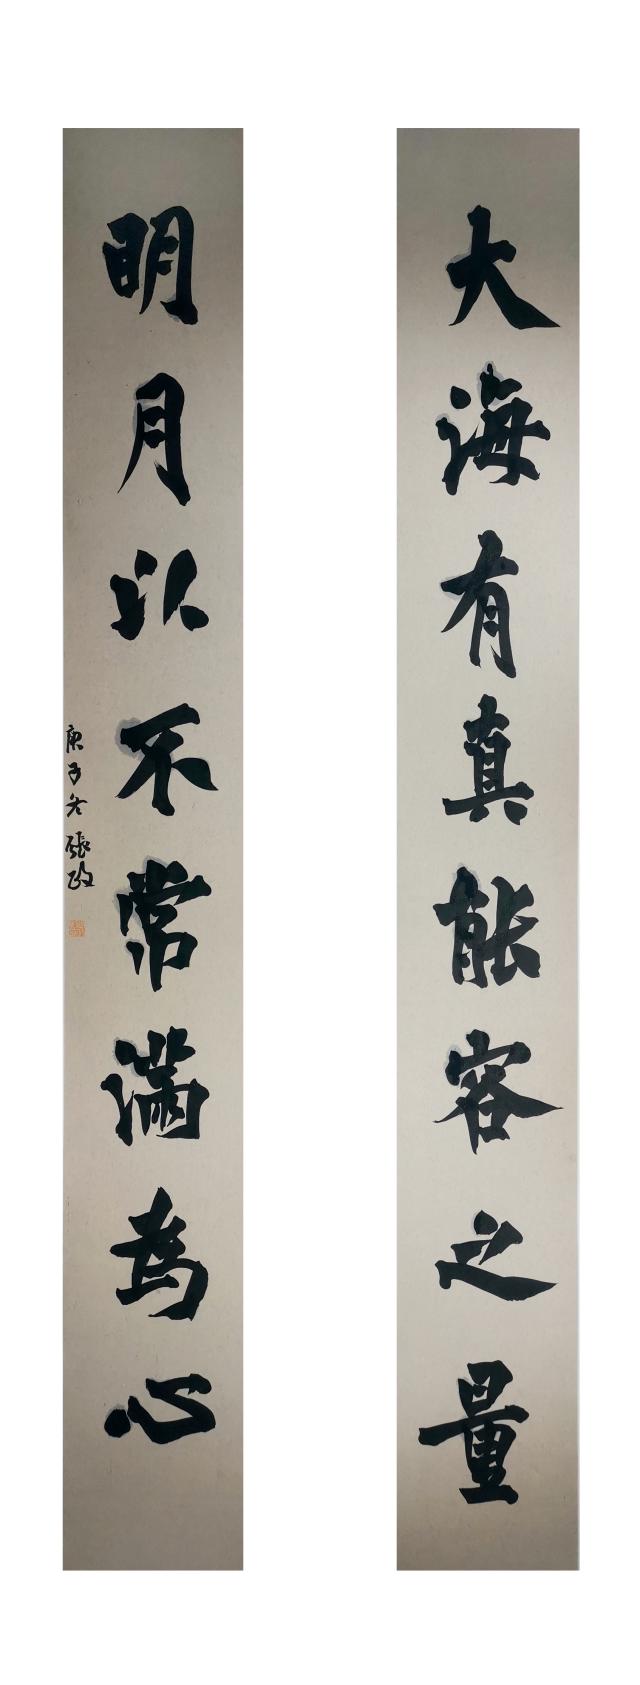 大海有真能容之量
明月以不常满為心
庚子冬張政